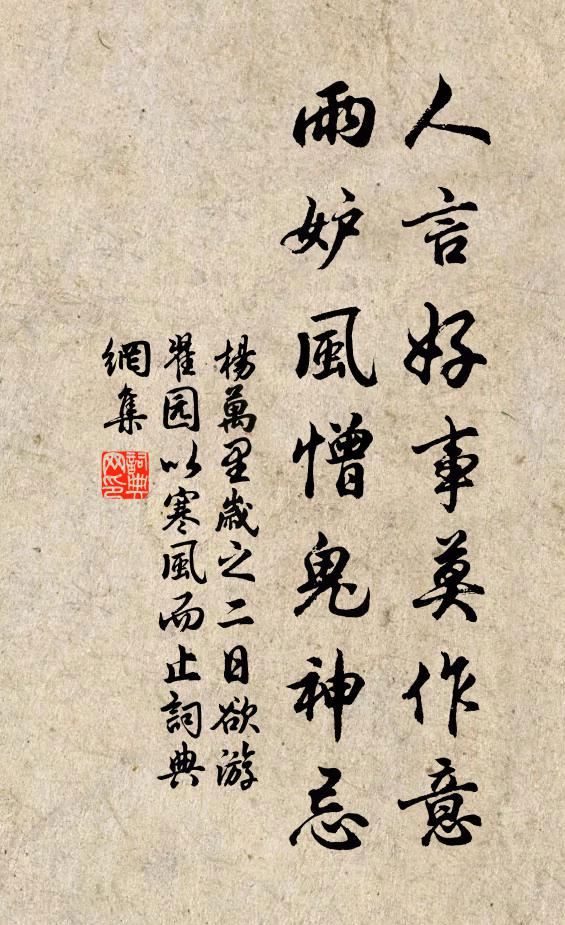 人言好事莫作意
雨妒風憎鬼神忌
楊萬里歲之二日欲游
翟园以寒風而止詞典
網集
詞典
网印